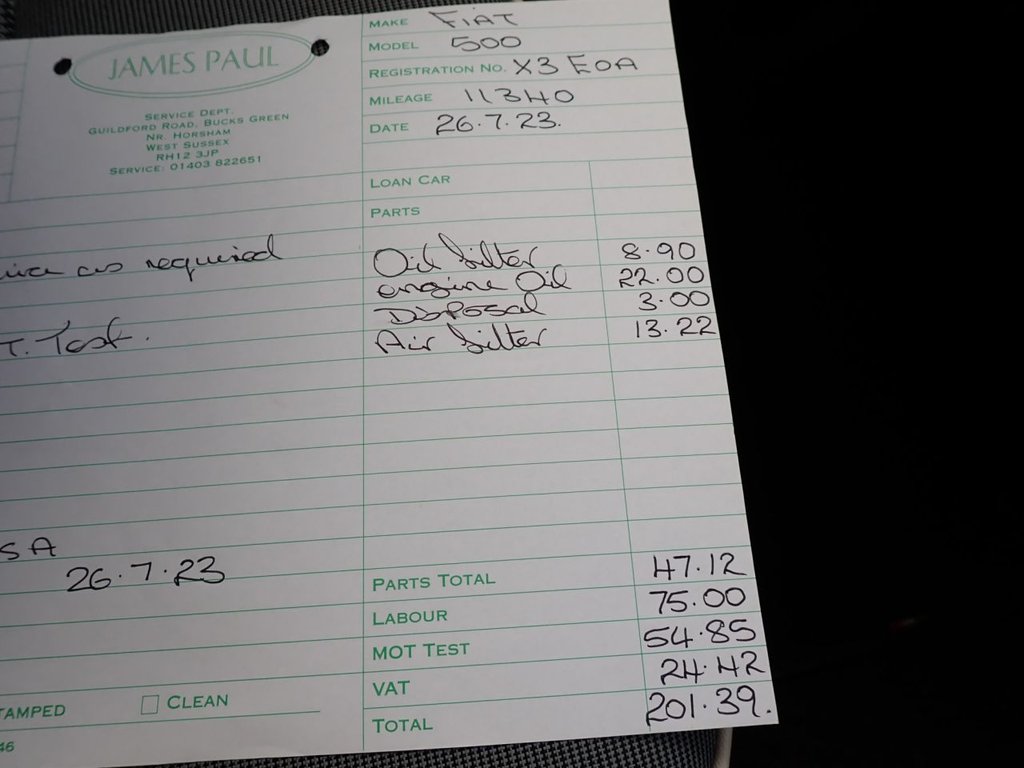 JAMES PAUL
SERVICE DEPT.
GUILDFORD ROAD, BUCKS GREEN
NR. HORSHAM
WEST SUSSEX
RH12 3JP
SERVICE: 01403 822651
MAKE FIAT
MODEL 500
REGISTRATION NO. X3 EOA
MILEAGE 11340
DATE 26.7.23.
LOAN CAR
PARTS
as required
T. Test.
Oil filter 8.90
engine Oil 22.00
Disposal 3.00
Air filter 13.22
SA
26.7.23
PARTS TOTAL 47.12
LABOUR 75.00
MOT TEST 54.85
VAT 24.42
TOTAL 201.39.
TAMPED CLEAN
46